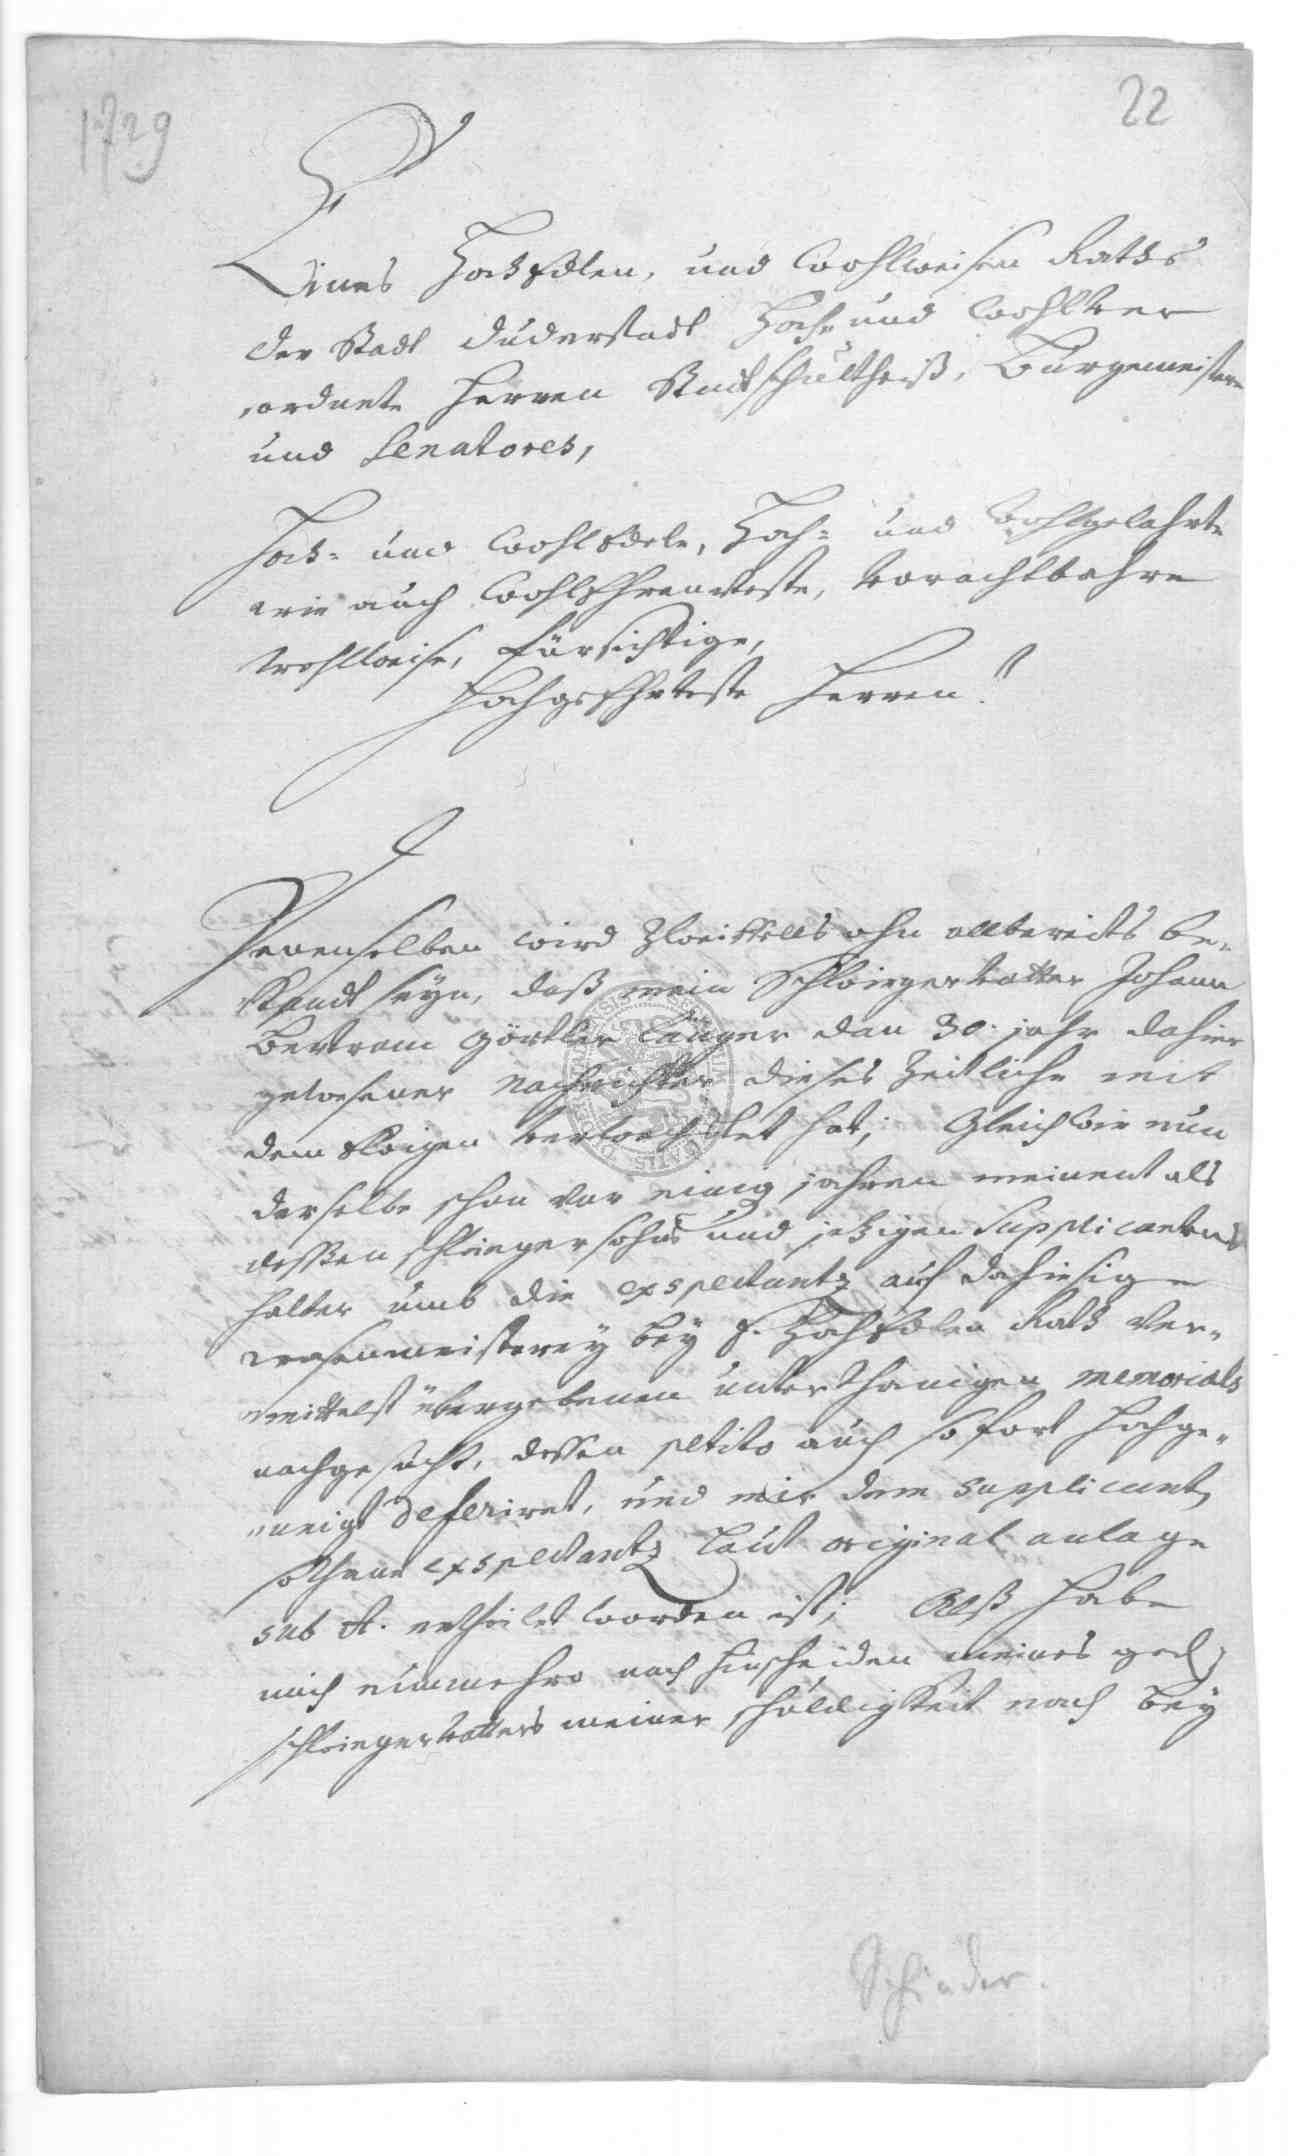 1729
22
Eines HochEdlen, und Wohlweisen Raths
der Stadt Duderstadt Hoch- und Wohlver
ordnete Herren Stadtschultheiß, Bürgemeistere
und Senatores,
Hoch- und WohlEdele, Hoch- und Wohlgelahrte
wie auch WohlEhrenveste, Vorachtbahre
Wohlweise, fürsichtige,
Hochgeehrteste Herren!
Denenselben wird Zweiffels ohn allbereits be-
kandt seyn, daß mein Schwiegervatter Johann
Bertram Görtler länger dan 30. jahr dahier
gewesener Nachrichter dieses Zeitliche mit
dem Ewigen verwechslet hat; Gleichwie nun
derselbe schon vor einig jahren meinent als
dessen schwiegersohns und jetzigen Supplicantens
halber umb die exspectantz auf dahiesige
wasenmeisterey bey E. HochEdlen Rath ver-
mittelst übergebenen unterthänigen memorials
nachgesucht, dessen petito auch sofort hochge-
neigt deferiret, und mir dem supplicant
sothane exspectantz laut original anlage
sub A. ertheilet worden ist; Alß habe
mich nunmehro nach hinscheiden meines ged.
schwiegervatters meiner schuldigkeit nach bey
Schinder.